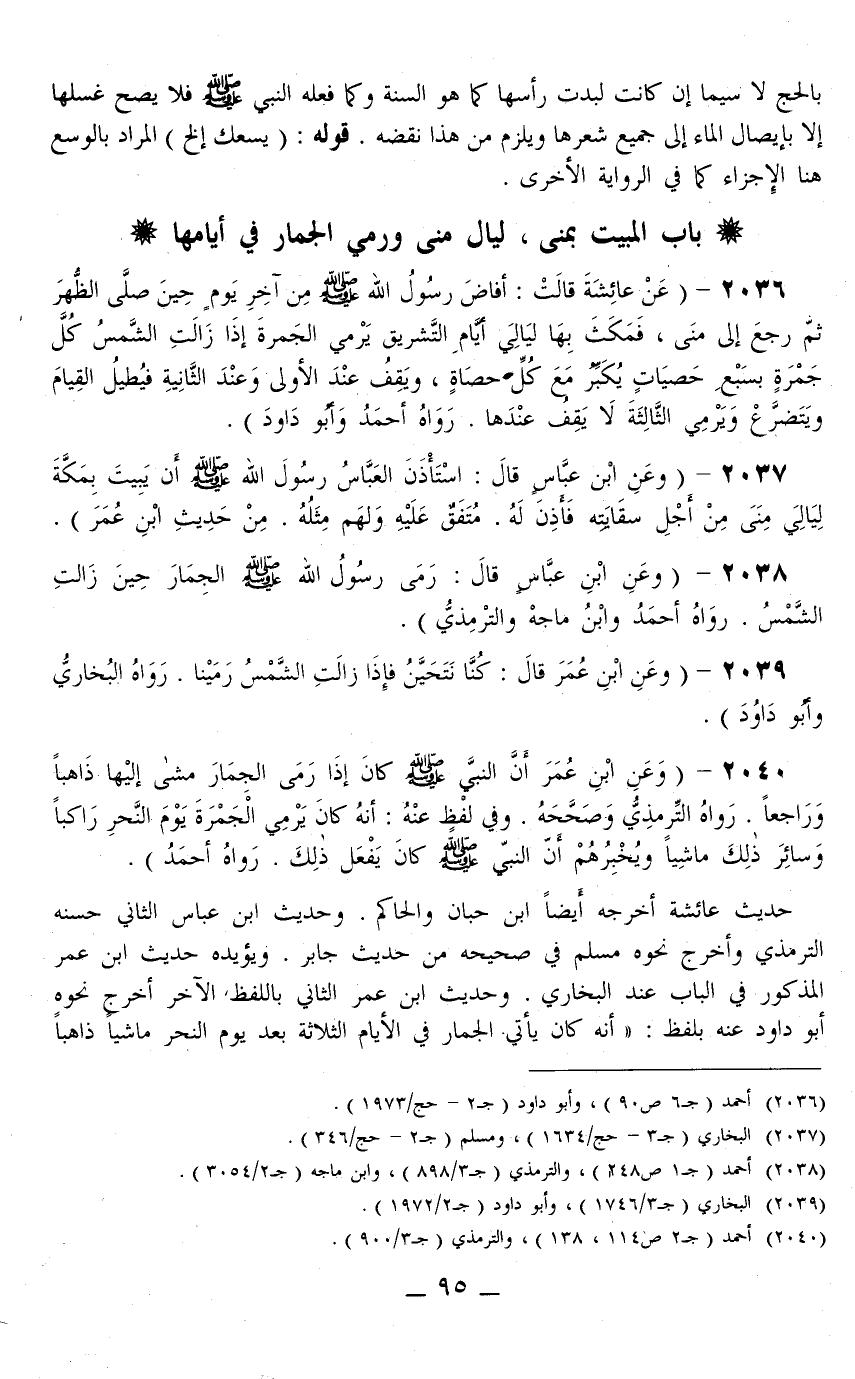 بالحج لا سيما إن كانت لبدت رأسها كما هو السنة وكما فعله النبي ﷺ فلا يصح غسلها
إلا بإيصال الماء إلى جميع شعرها ويلزم من هذا نقضه . قوله : ( يسعك إلخ ) المراد بالوسع
هنا الإجزاء كما في الرواية الأخرى .
✵ باب المبيت بمنى ، ليال منى ورمي الجمار في أيامها ✵
٢٠٣٦ – ( عَنْ عائِشَةَ قالَتْ : أفاضَ رسُولُ الله ﷺ مِن آخِرِ يَومٍ حِينَ صلَّى الظُّهرَ
ثمّ رجعَ إلى منَى ، فَمَكَثَ بِهَا ليَاليَ أيَّامِ التَّشريق يَرْمي الجَمرةَ إذَا زَالَتِ الشَّمسُ كُلَّ
جَمْرَةٍ بسَبْعِ حَصيَاتٍ يُكَبِّرُ مَعَ كُلِّ حصَاةٍ ، ويَقِفُ عندَ الأولى وَعندَ الثَّانيَةِ فيُطيلُ القِيامَ
ويَتَضرَّعُ وَيَرْمِي الثَّالِثَةَ لَا يَقِفُ عنْدَها . رَوَاهُ أحمَدُ وَأبُو دَاودَ ) .
٢٠٣٧ – ( وعَنِ ابْن عبَّاسٍ قالَ : اسْتَأْذَنَ العَبَّاسُ رسُولَ الله ﷺ أن يَبِيتَ بِمَكَّةَ
لِيَالِي مِنَى مِنْ أَجْلِ سقَايَتِه فَأَذِنَ لَهُ . مُتَفَقٌ عَلَيْهِ وَلهَم مِثلُهُ . مِنْ حَدِيثِ ابْنِ عُمَرَ ) .
٢٠٣٨ – ( وعَنِ ابْنِ عبَّاسٍ قالَ : رَمَى رسُولُ الله ﷺ الجِمَارَ حِينَ زَالتِ
الشَّمْسُ . روَاهُ أحمَدُ وابْنُ ماجهْ والترْمِذيُّ ) .
٢٠٣٩ – ( وعَنِ ابْنِ عُمَرَ قالَ : كُنَّا نَتَحَيَّنُ فإذَا زالَتِ الشَّمْسُ رَمَيْنا . رَوَاهُ البُخاريُّ
وأبُو دَاوُدَ ) .
٢٠٤٠ – ( وَعَنِ ابْنِ عُمَرَ أَنَّ النبيَّ ﷺ كانَ إذَا رَمَى الجِمَارَ مشىٰ إليْها ذَاهباً
وَرَاجعاً . رَواهُ التِّرمذِيُّ وَصَحَّحَهُ . وفي لفْظٍ عنْهُ : أنهُ كانَ يَرْمِي الْجَمْرَةَ يَوْمَ النَّحرِ رَاكباً
وَسائِرَ ذٰلِكَ ماشِياً ويُخْبِرُهُمْ أنّ النبيّ ﷺ كانَ يَفْعَل ذٰلِكَ . رَواهُ أحمَدُ ) .
حديث عائشة أخرجه أيضاً ابن حبان والحاكم . وحديث ابن عباس الثاني حسنه
الترمذي وأخرج نحوه مسلم في صحيحه من حديث جابر . ويؤيده حديث ابن عمر
المذكور في الباب عند البخاري . وحديث ابن عمر الثاني باللفظ الآخر أخرج نحوه
أبو داود عنه بلفظ : « أنه كان يأتي الجمار في الأيام الثلاثة بعد يوم النحر ماشياً ذاهباً
(٢٠٣٦) أحمد ( جـ٦ ص٩٠ ) ، وأبو داود ( جـ٢ – حج/١٩٧٣ ) .
(٢٠٣٧) البخاري ( جـ٣ – حج/١٦٣٤ ) ، ومسلم ( جـ٢ – حج/٣٤٦ ) .
(٢٠٣٨) أحمد ( جـ١ ص٢٤٨ ) ، والترمذي ( جـ٨٩٨/٣ ) ، وابن ماجه ( جـ٣٠٥٤/٢ ) .
(٢٠٣٩) البخاري ( جـ١٧٤٦/٣ ) ، وأبو داود ( جـ١٩٧٢/٢ ) .
(٢٠٤٠) أحمد ( جـ٢ ص١١٤ ، ١٣٨ ) ، والترمذي ( جـ٩٠٠/٣ ) .
_ ٩٥ _